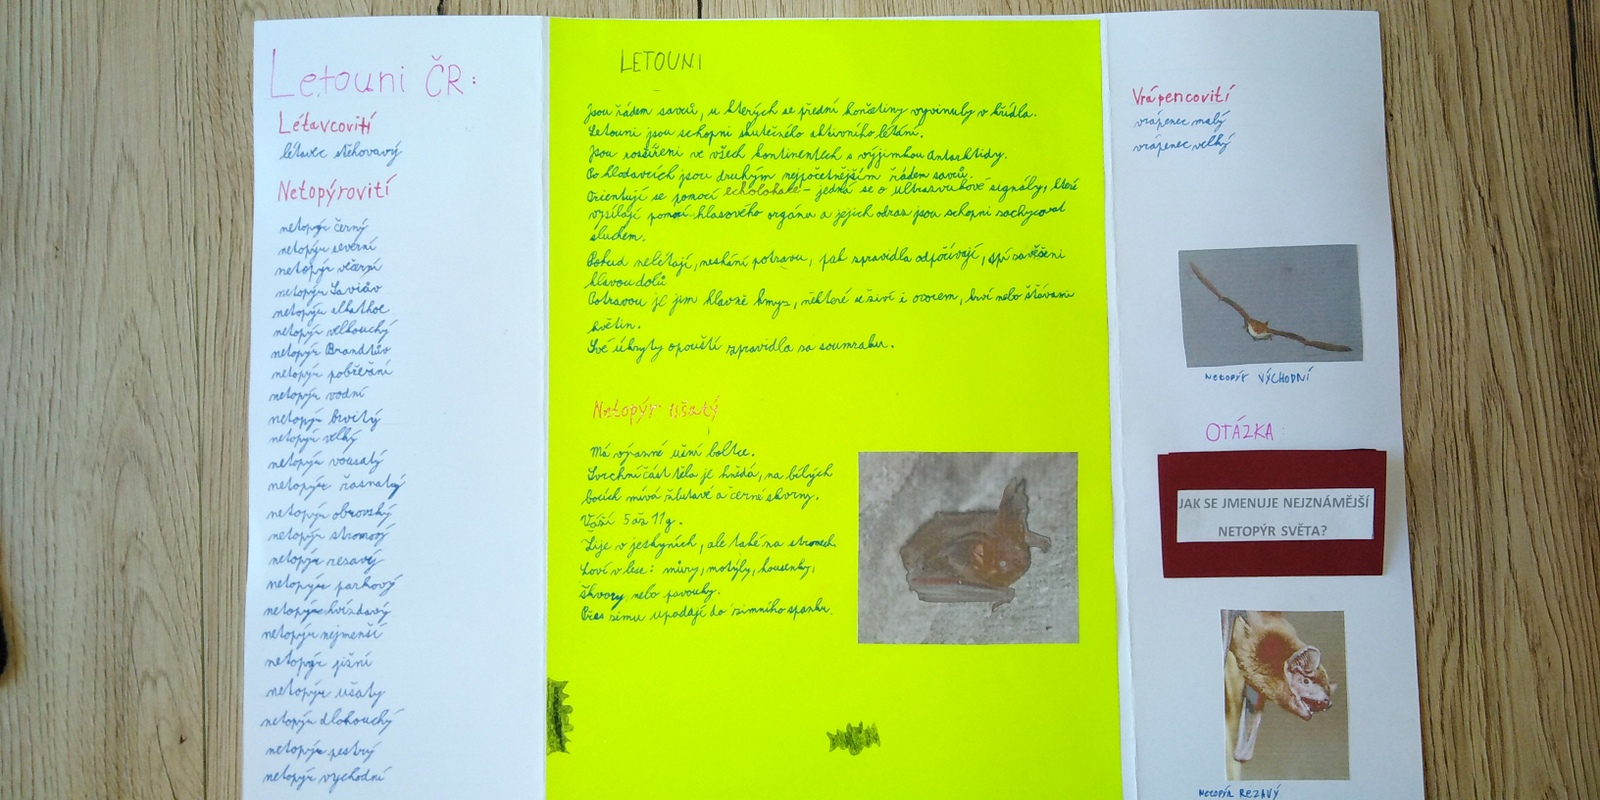 Letouni ČR:
Létavcovití
létavec stěhovavý
Netopýrovití
netopýr černý
netopýr severní
netopýr večerní
netopýr Saviův
netopýr alkathoe
netopýr velkouchý
netopýr Brandtův
netopýr pobřežní
netopýr vodní
netopýr brvitý
netopýr velký
netopýr vousatý
netopýr řasnatý
netopýr obrovský
netopýr stromový
netopýr rezavý
netopýr parkový
netopýr hvízdavý
netopýr nejmenší
netopýr jižní
netopýr ušatý
netopýr dlouhouchý
netopýr pestrý
netopýr vychodní
LETOUNI
Jsou řádem savců, u kterých se přední končetiny vyvinuly v křídla.
Letouni jsou schopni skutečného aktivního létání.
Jsou rozšířeni ve všech kontinentech s výjimkou Antarktidy.
Po hlodavcích jsou druhým nejpočetnějším řádem savců.
Orientují se pomocí echolokace - jedná se o ultrazvukové signály, které
vysílají pomocí hlasového orgánu a jejich odraz jsou schopni zachycovat
sluchem.
Pokud nelétají, neshání potravu, pak zpravidla odpočívají, spí zavěšeni
hlavou dolů
Potravou je jim hlavně hmyz, některé se živí i ovocem, krví nebo šťávami
květin.
Své úkryty opouští zpravidla za soumraku.
Netopýr ušatý
Má výrazné ušní boltce.
Svrchní část těla je hnědá, na bílých
bocích mívá žlutavé a černé skvrny.
Váží 5 až 11g.
Žije v jeskyních, ale také na stromech.
Loví v lese: můry, motýly, housenky,
škvory nebo pavouky.
Přes zimu upadají do zimního spánku.
Vrápencovití
vrápenec malý
vrápenec velký
NETOPÝR VÝCHODNÍ
OTÁZKA:
JAK SE JMENUJE NEJZNÁMĚJŠÍ
NETOPÝR SVĚTA?
NETOPÝR REZAVÝ